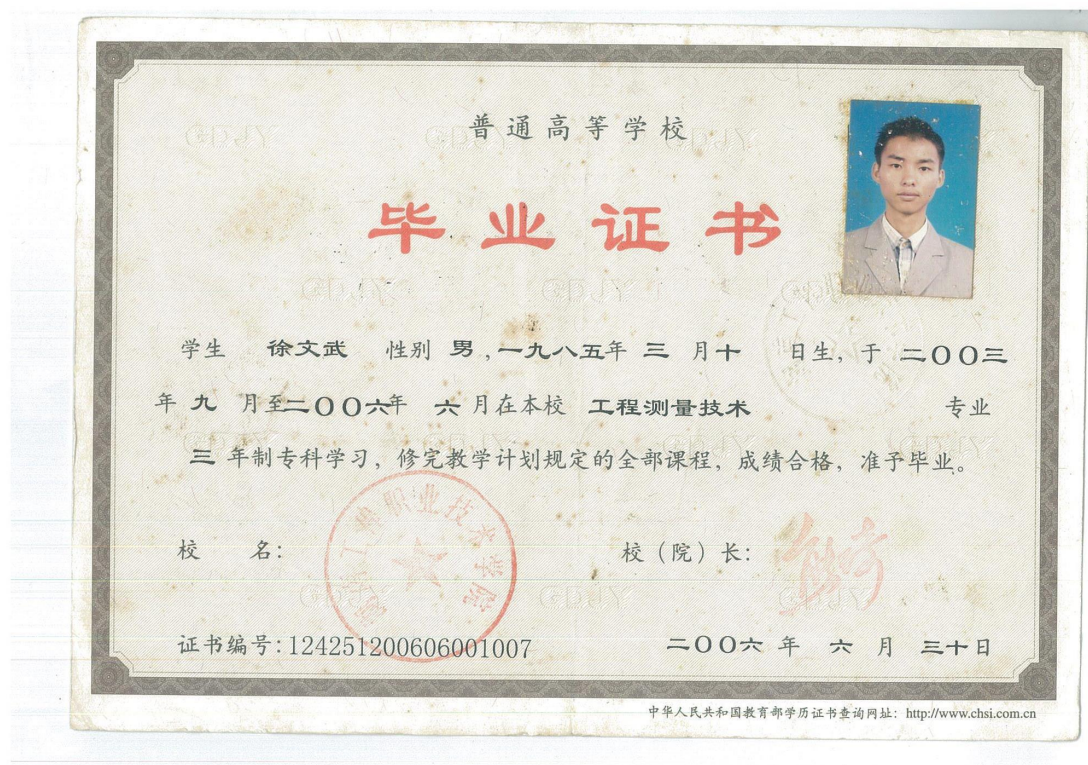 普通高等学校
毕业证书
学生 徐文武 性别 男,一九八五年 三 月十 日生,于 二〇〇三
年 九 月至二〇〇六年 六 月在本校 工程测量技术 专业
三 年制专科学习,修完教学计划规定的全部课程,成绩合格,准予毕业。
职业技术学院
校 名: 校(院)长:
证书编号:124251200606001007 二〇〇六 年 六 月 三十日
中华人民共和国教育部学历证书查询网址: http://www.chsi.com.cn